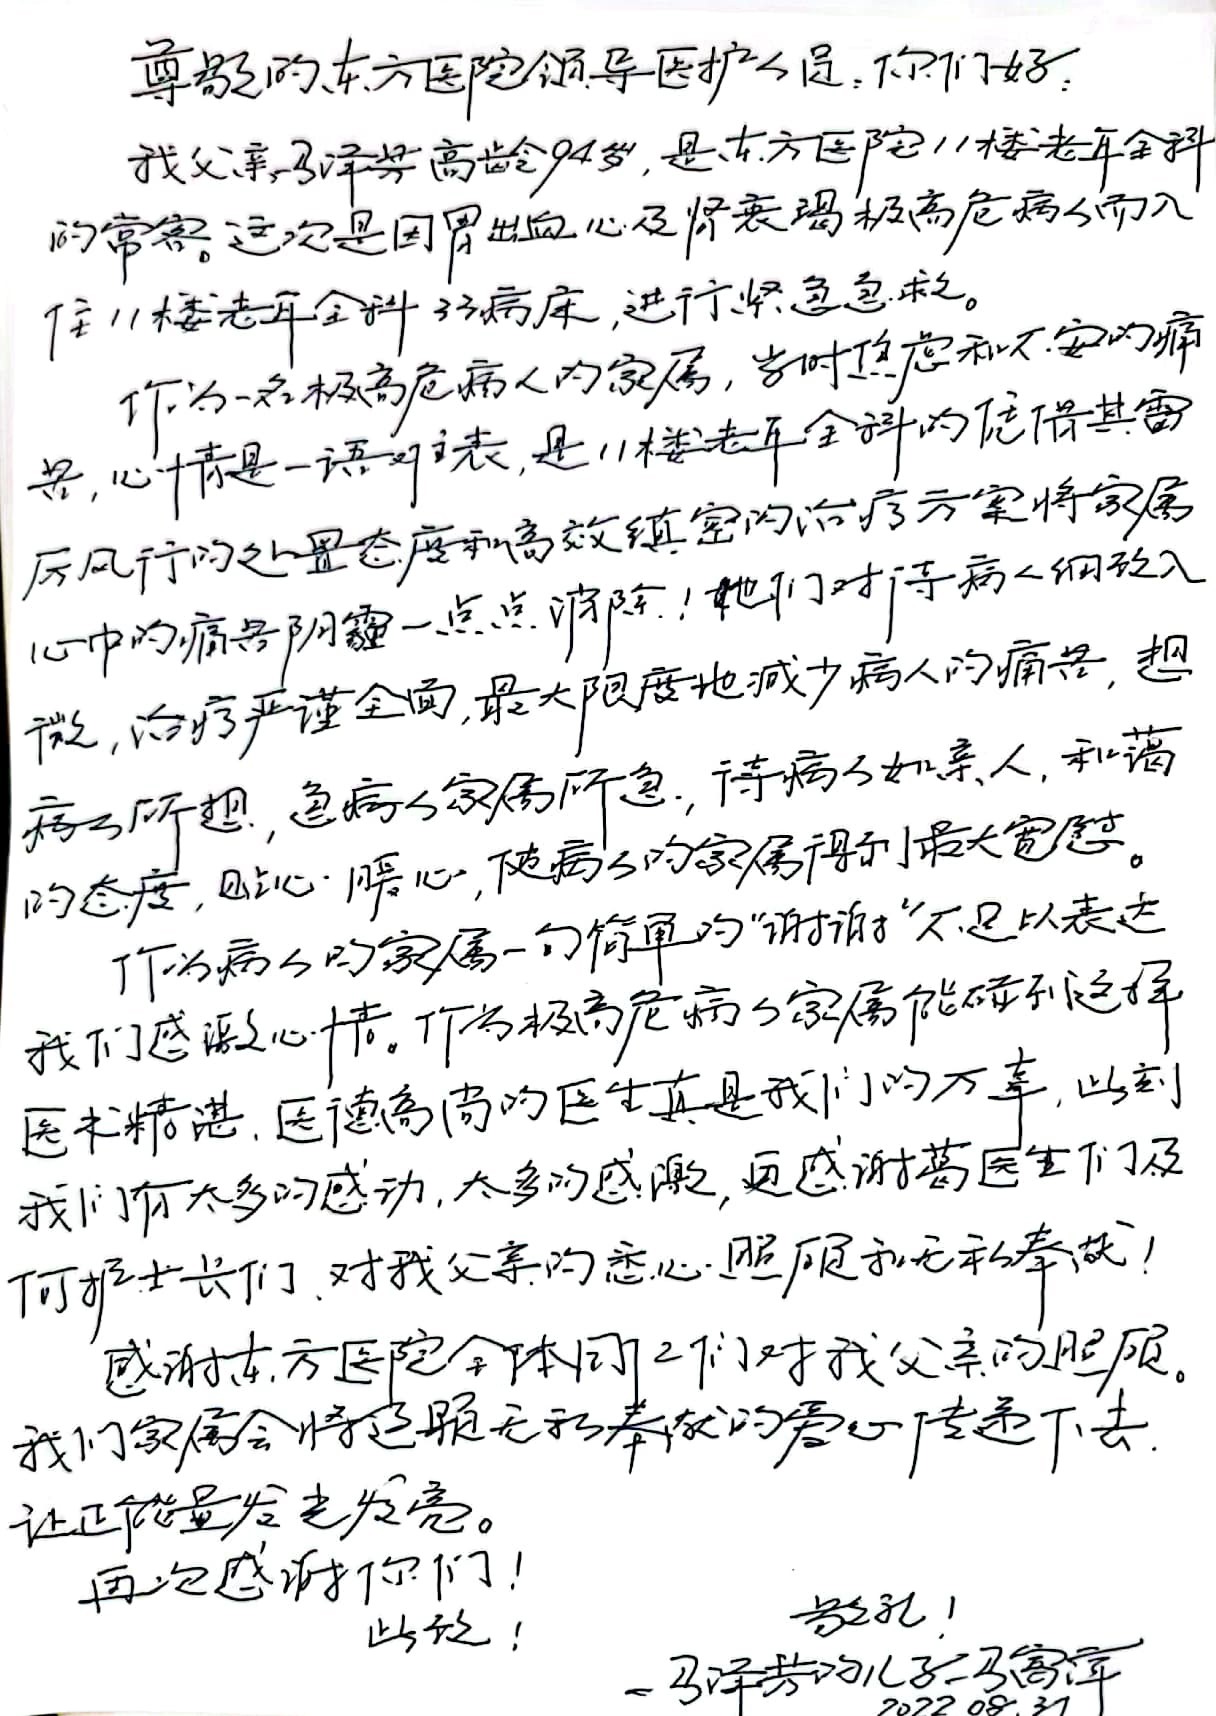 尊敬的东方医院领导医护人员：你们好：
我父亲马泽芳高龄94岁，是东方医院11楼老年全科
的常客。这次是因胃出血心及肾衰竭极高危病人而入
住11楼老年全科33病床，进行紧急急救。
作为一名极高危病人的家属，当时焦虑和不安的痛
苦，心情是一语难表，是11楼老年全科的凭借其雷
厉风行的处置态度和高效缜密的治疗方案将家属
心中的痛苦阴霾一点点消除！她们对待病人细致入
微，治疗严谨全面，最大限度地减少病人的痛苦，想
病人所想，急病人家属所急，待病人如亲人，和蔼
的态度，贴心·暖心，使病人的家属得到最大宽慰。
作为病人的家属一句简单的“谢谢”不足以表达
我们感激心情。作为极高危病人家属能碰到这样
医术精湛、医德高尚的医生真是我们的万幸，此刻
我们有太多的感动，太多的感激，更感谢葛医生们及
何护士长们、对我父亲的悉心照顾和无私奉献！
感谢东方医院全体同仁们对我父亲的照顾。
我们家属会将这颗无私奉献的爱心传递下去.
让正能量发光发亮。
再次感谢你们！
此致！
敬礼！
马泽芳的儿子：马富萍
2022.08.31